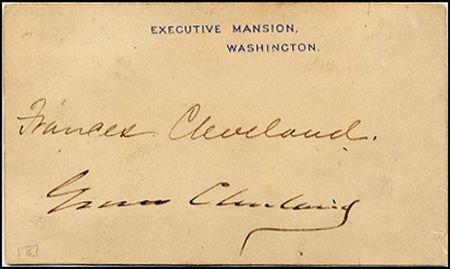 EXECUTIVE MANSION,
WASHINGTON.
Frances Cleveland.
Grover Cleveland